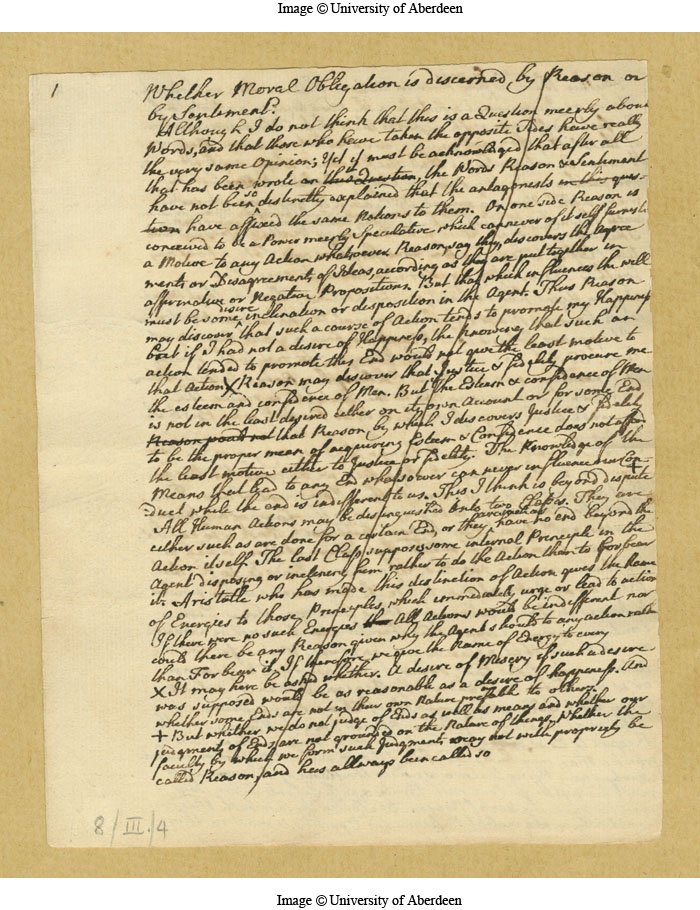 Image © University of Aberdeen
1
Whether Moral Obligation is discerned by Reason or
by Sentiment.
Although I do not think that this is a Question meerly about
Words, and that those who have taken the opposite Sides have really
the very same Opinion; Yet it must be acknowledged that after all
that has been wrote on this Question, the Words Reason & Sentiment
have not been so distinctly explained that the antagonists in this ques-
tion have affixed the same Notions to them. On one side Reason is
conceived to be a Power meerly Speculative which can never of it self furnish
a Motive to any Action whatsoever. Reason, say they, discovers the Agree
ments or Disagreements of Ideas, according as they are put together in
affirmative or Negative Propositions. But that which influences the will
must be some desire inclination or disposition in the Agent. Thus Reason
may discover that such a course of Action tends to promote my Happiness
but if I had not a desire of Happiness, the Knowledge that such an
action tended to promote this End would not give the least motive to
that Action X Reason may discover that Justice & fidelity procure me
the esteem and confidence of Men. But If the Esteem & confidence of Men
is not in the least desired either on its own Account or for some End
Reason would not that Reason by which I discovers Justice & fidelity
to be the proper mean of acquiring Esteem & Confidence does not afford
the least motive either to Justice or fidelity. The Knowledge of the
Means that lead to any End whatsoever can never influence our Con-
duct while the end is indifferent to us. This I think is beyond dispute +
All Human Actions may be distinguished into two Classes. They are
either such as are done for a certain End, or they have no end beyond the
Action it self. The last Class supposes some internal Principle in the
Agent disposing or inclining him rather to do the Action than to forbear
it. Aristotle who has made this distinction of Action gives the Name
of Energies to those Principles which immediately urge or lead to action
If there were no such Energies all Actions would be indifferent nor
could there be any Reason given why the Agent should to any action rather
than Forbear it. If therefore we give the Name of Energy to every
X It may here be asked whether. A desire of Misery if such a desire
was supposed would be as reasonable as a desire of happiness. And
whether some Ends are not in their own Nature preferable to others.
+ But whether we do not judge of Ends as well as means and whether our
judgments of Ends are not grounded on the Nature of things, Whether the
faculty by which we form such Judgments may not with propriety be
called Reason, and has allways been called so
8/III./4
Image © University of Aberdeen